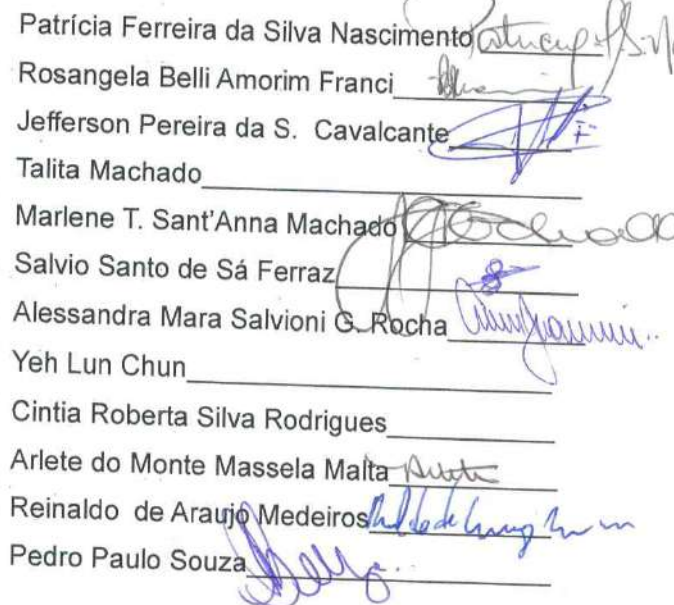 Patrícia Ferreira da Silva Nascimento
Rosangela Belli Amorim Franci
Jefferson Pereira da S. Cavalcante
Talita Machado
Marlene T. Sant'Anna Machado
Salvio Santo de Sá Ferraz
Alessandra Mara Salvioni G. Rocha
Yeh Lun Chun
Cintia Roberta Silva Rodrigues
Arlete do Monte Massela Malta
Reinaldo de Araujo Medeiros
Pedro Paulo Souza